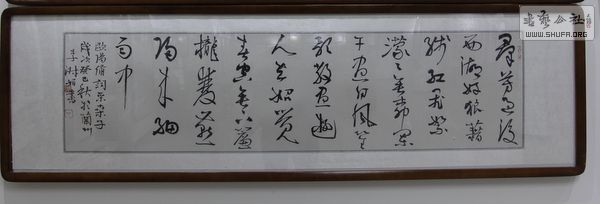 羣芳過後
西湖好狼籍
殘紅飛絮
濛々垂柳闌
干盡日風笙
歌散盡遊
人去始覺
春空垂下簾
櫳雙燕
歸來細
雨中
歐陽修詞采桑子
歲次癸巳秋於蘭州
書藝公社
WWW.SHUFA.ORG